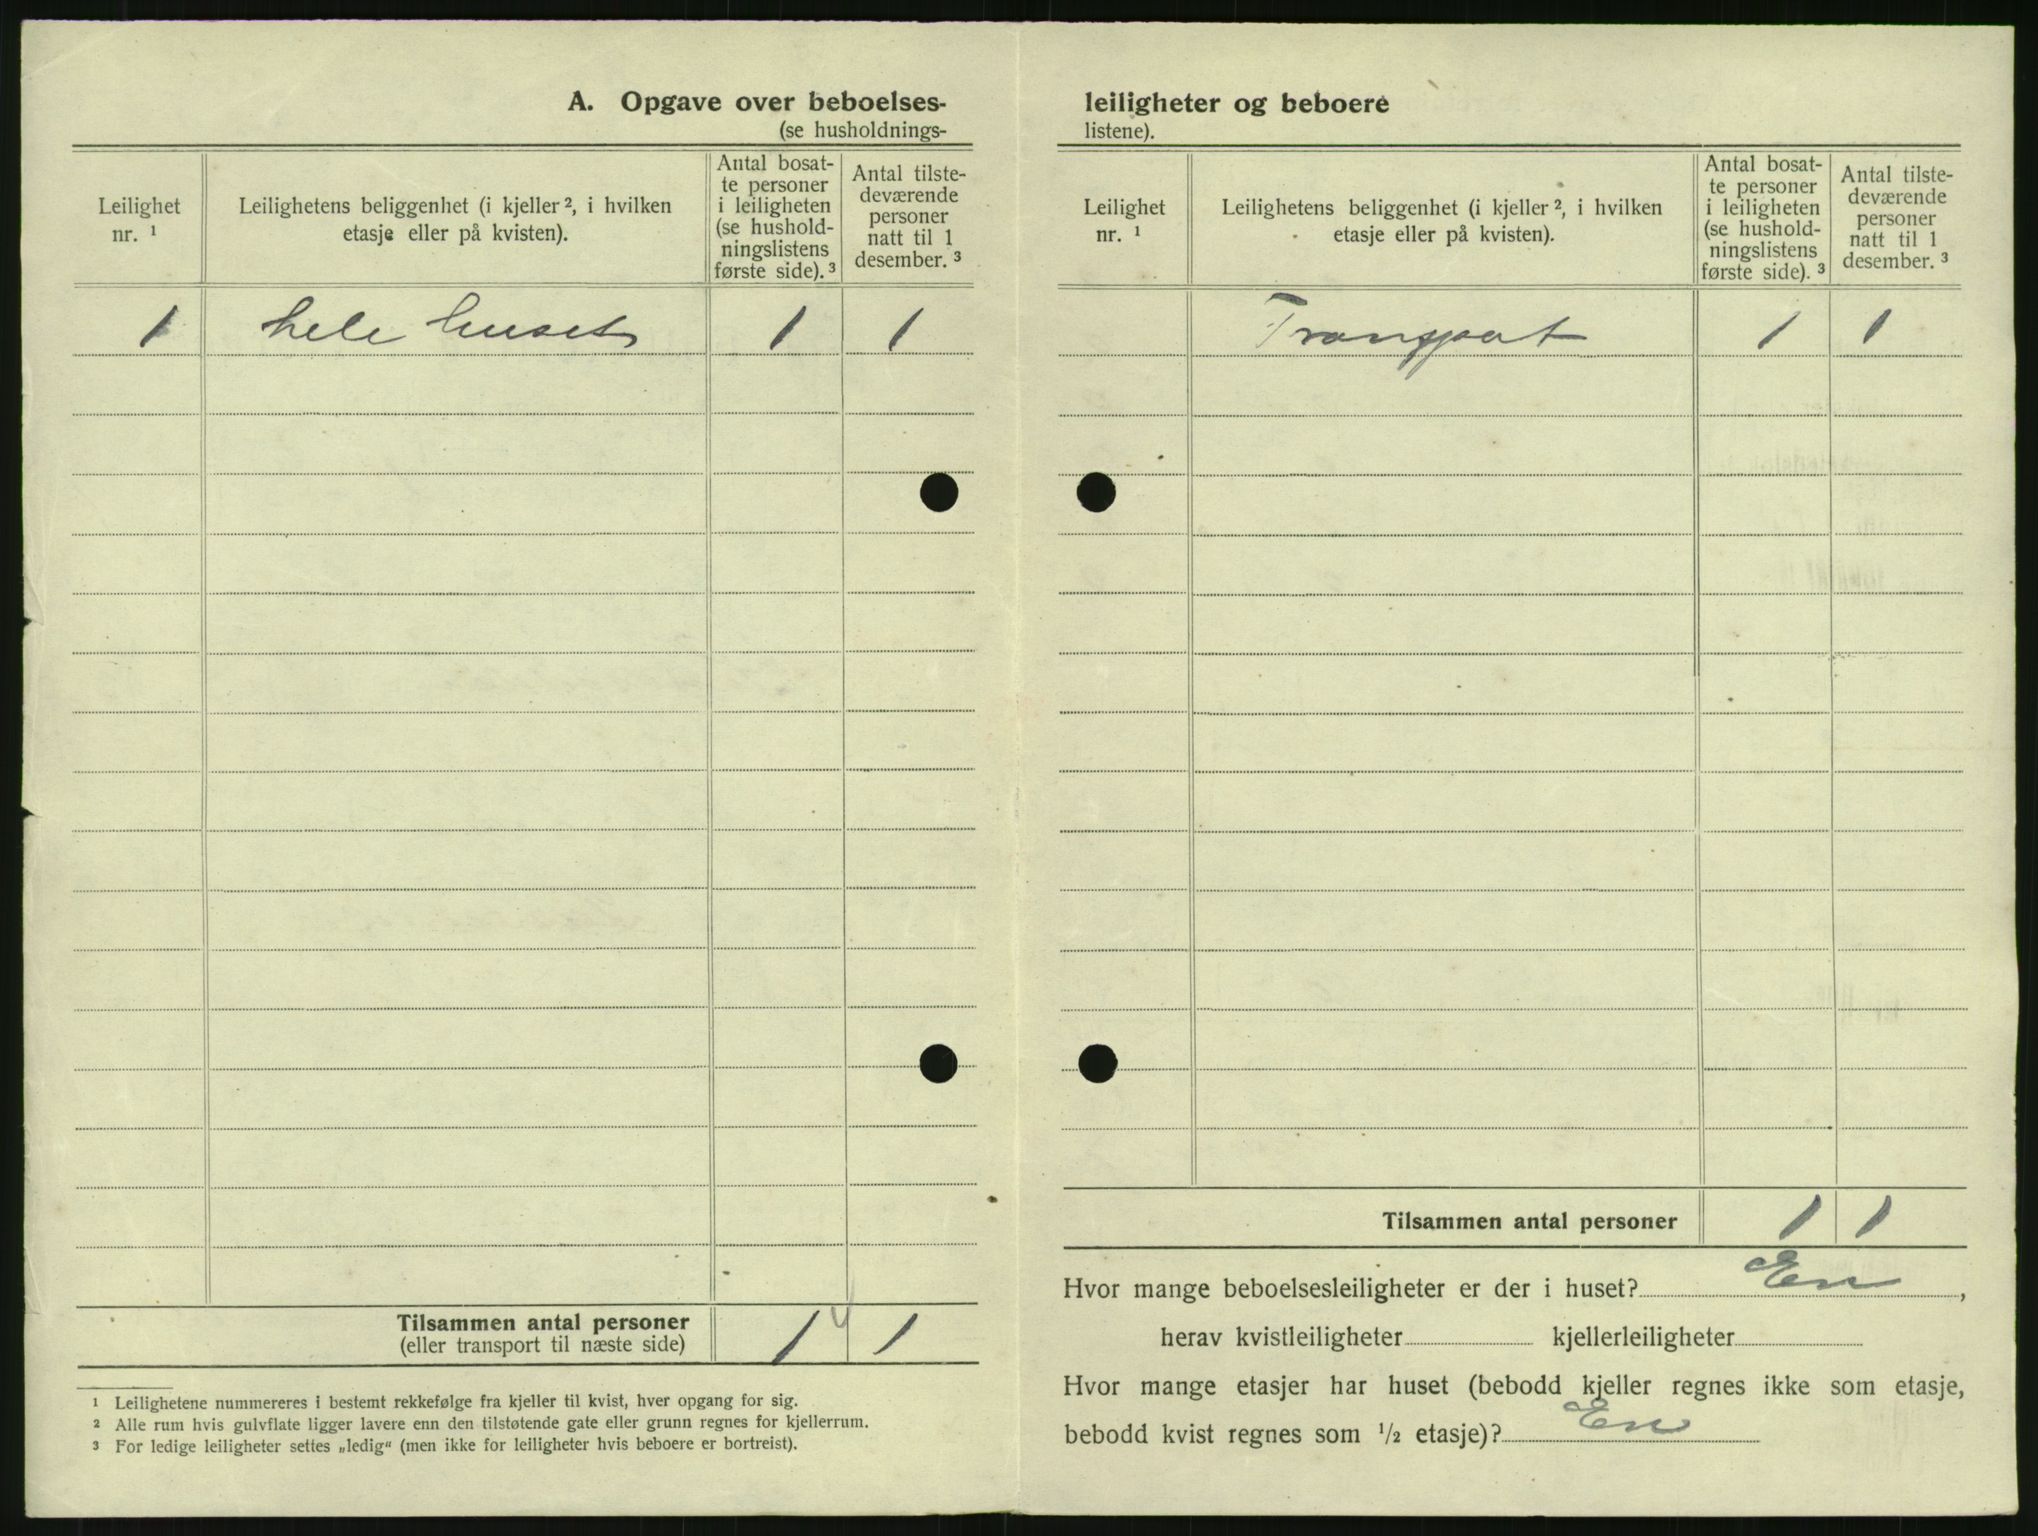 A. Opgave over beboelses-
(se husholdnings-
Leilighet nr. ¹
Leilighetens beliggenhet (i kjeller ², i hvilken etasje eller på kvisten).
Antal bosat-
te personer
i leiligheten
(se hushold-
ningslistens
første side). ³
Antal tilste-
deværende
personer
natt til 1
desember. ³
1 hele huset 1 1
Tilsammen antal personer 1 4 1
(eller transport til næste side)
¹ Leilighetene nummereres i bestemt rekkefølge fra kjeller til kvist, hver opgang for sig.
² Alle rum hvis gulvflate ligger lavere enn den tilstøtende gate eller grunn regnes for kjellerrum.
³ For ledige leiligheter settes „ledig“ (men ikke for leiligheter hvis beboere er bortreist).
leiligheter og beboere
listene).
Leilighet nr. ¹
Leilighetens beliggenhet (i kjeller ², i hvilken etasje eller på kvisten).
Antal bosat-
te personer
i leiligheten
(se hushold-
ningslistens
første side). ³
Antal tilste-
deværende
personer
natt til 1
desember. ³
Transport 1 1
Tilsammen antal personer 1 1
Hvor mange beboelsesleiligheter er der i huset? En,
herav kvistleiligheter kjellerleiligheter
Hvor mange etasjer har huset (bebodd kjeller regnes ikke som etasje,
bebodd kvist regnes som ½ etasje)? En